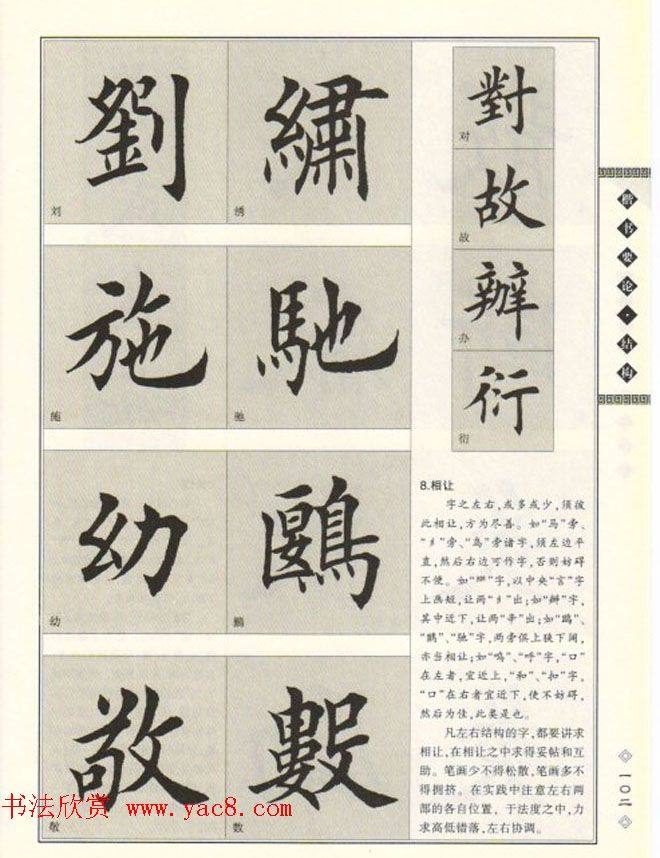 劉
刘
繡
绣
施
施
馳
驰
幼
幼
鷗
鸥
敬
敬
數
数
對
对
故
故
辦
办
衍
衍
8.相让
字之左右,或多或少,须彼
此相让,方为尽善。如“马”旁、
“纟”旁、“鸟”旁诸字,须左边平
直,然后右边可作字,否则妨碍
不便。如“䜌”字,以中央“言”字
上画短,让两“纟”出;如“辦”字,
其中近下,让两“辛”出;如“鸥”、
“鶴”、“驰”字,两旁俱上狭下阔,
亦当相让;如“鸣”、“呼”字,“口”
在左者,宜近上,“和”、“扣”字,
“口”在右者宜近下,使不妨碍,
然后为佳,此类是也。
凡左右结构的字,都要讲求
相让,在相让之中求得妥帖和互
助。笔画少不得松散,笔画多不
得拥挤。在实践中注意左右两
部的各自位置,于法度之中,力
求高低错落、左右协调。
楷书要论·结构
一〇二
书法欣赏 www.yac8.com